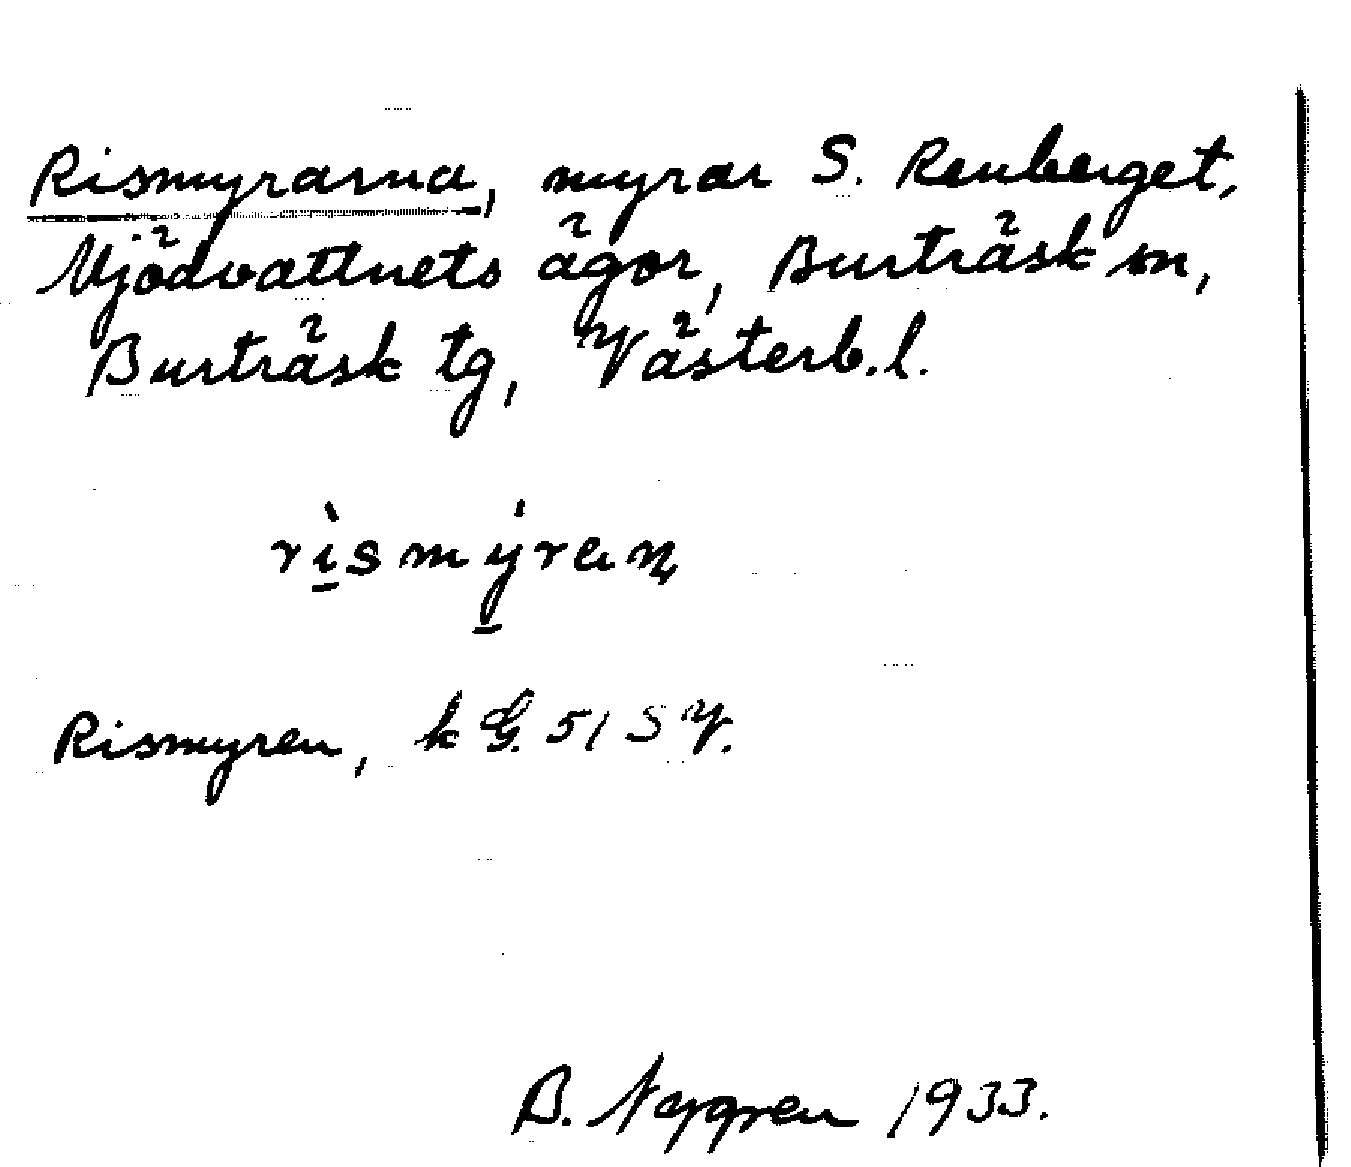 Rismyrarna, myrar S. Renberget,
Mjödvattnets ägor, Burträsk sn,
Burträsk tg, Västerb.l.
rismyran
Rismyren, k G. 51 S V.
B. Nygren 1933.